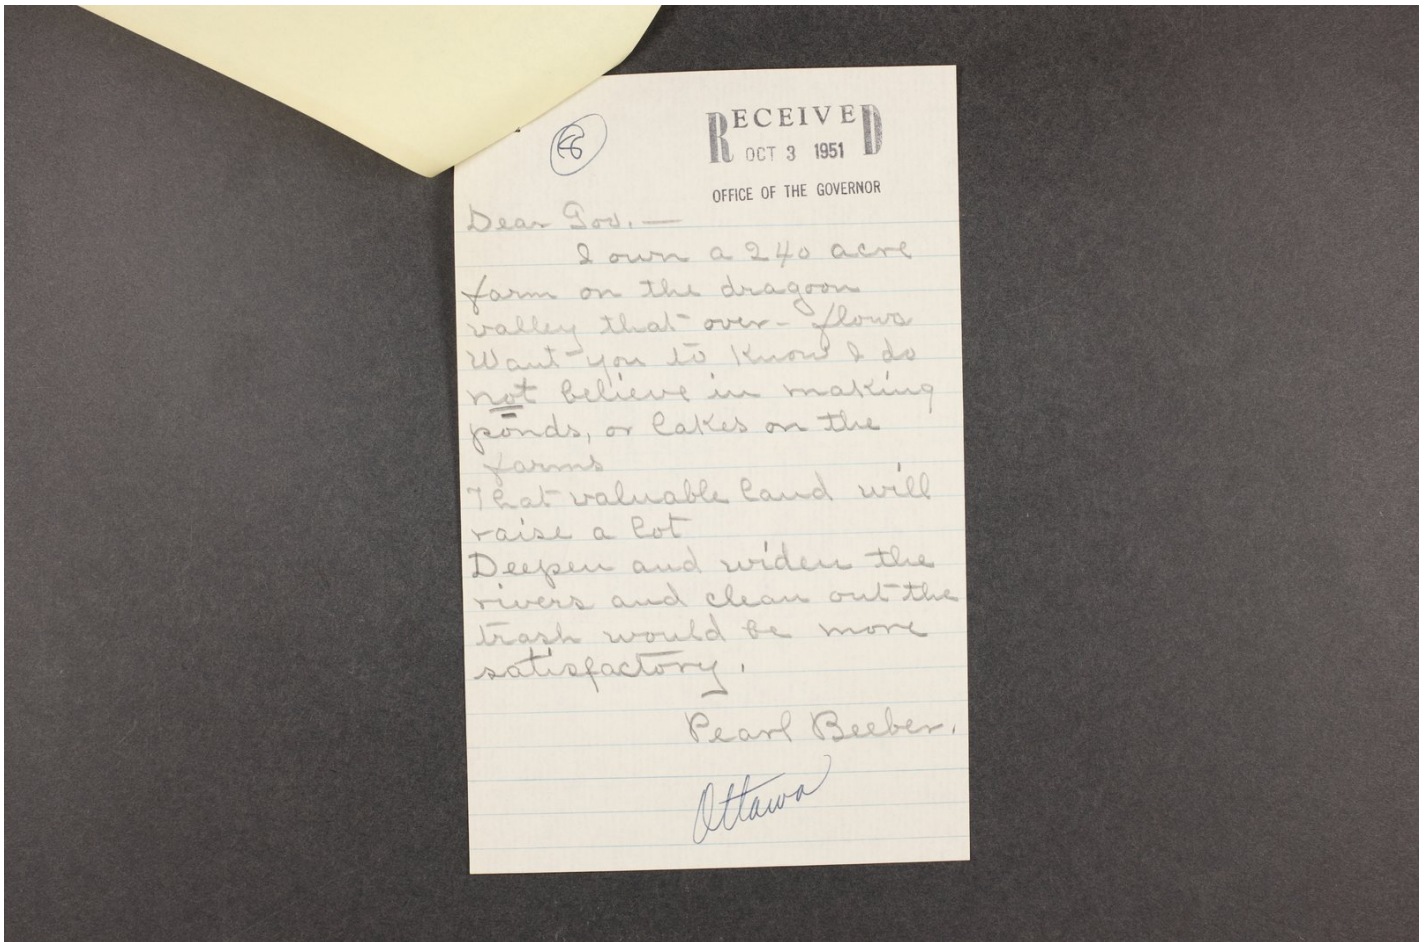 RECEIVED
OCT 3 1951
OFFICE OF THE GOVERNOR
Dear Gov. —
I own a 240 acre
farm on the dragoon
valley that over-flows
Want you to know I do
not believe in making
ponds, or lakes on the
farms
That valuable land will
raise a lot
Deepen and widen the
rivers and clean out the
trash would be more
satisfactory.
Pearl Beeber.
Ottawa